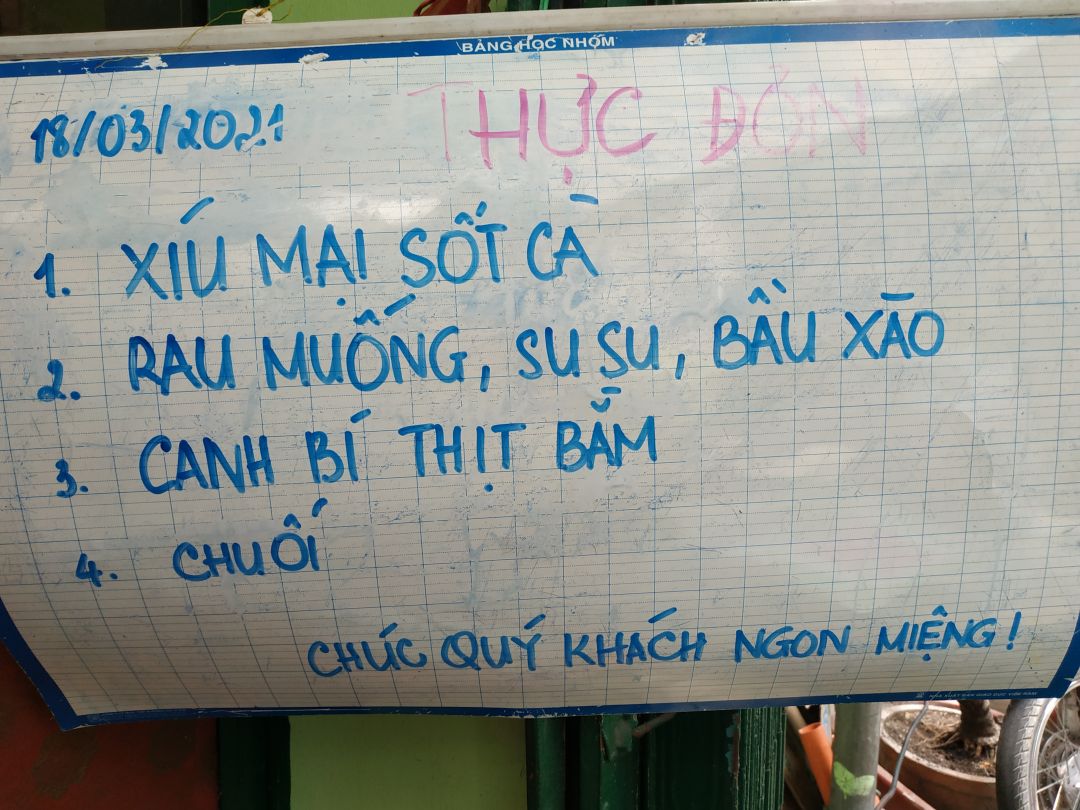 BẢNG HỌC NHÓM
THỰC ĐƠN
18/03/2021
1. XÍU MẠI SỐT CÀ
2. RAU MUỐNG, SU SU, BẦU XÀO
3. CANH BÍ THỊT BẰM
4. CHUỐI
CHÚC QUÝ KHÁCH NGON MIỆNG!
NHÀ XUẤT BẢN GIÁO DỤC VIỆT NAM